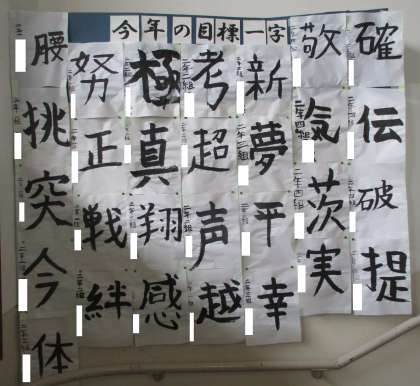 今年の目標一字
確
伝
破
提
敬
気
茨
実
新
夢
平
幸
考
超
声
越
極
真
翔
感
努
正
戦
絆
腰
挑
突
今
体